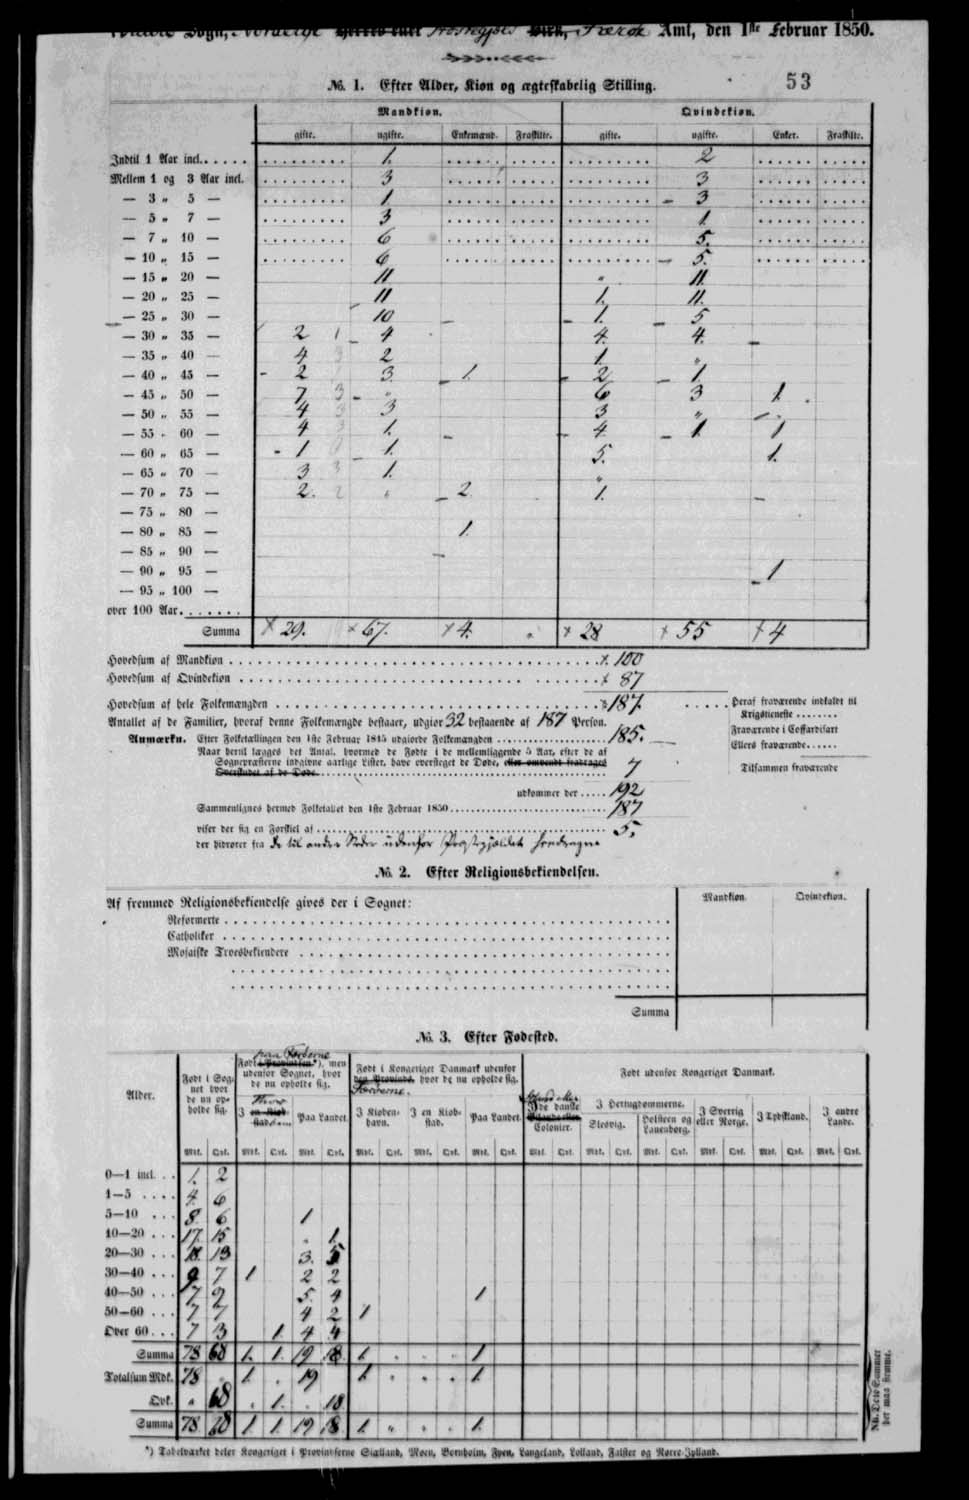 Sogn, Amt, den 1ste Februar 1850.
53
No. 1. Efter Alder, Kion og ægteskabelig Stilling.
Mandkion. Qvindekion.
gifte. ugifte. Enkemænd. Fraskilte. gifte. ugifte. Enker. Fraskilte.
Indtil 1 Aar incl. 1. 2
Mellem 1 og 3 Aar incl. 3 3
— 3 " 5 — 1 3
— 5 " 7 — 3 1.
— 7 " 10 — 6 5.
— 10 " 15 — 6 5.
— 15 " 20 — 11 " 11.
— 20 " 25 — 11 1. 11.
— 25 " 30 — 10 1. 5
— 30 " 35 — 2 1 4 4. 4.
— 35 " 40 — 4 3 2 1. "
— 40 " 45 — 2 3. 1. 2 1.
— 45 " 50 — 7 3 " 6 3 1.
— 50 " 55 — 4 3 3 3 "
— 55 " 60 — 4 3 1. 4. 1 1
— 60 " 65 — 1 1. 5. 1.
— 65 " 70 — 3 3 1. "
— 70 " 75 — 2. 2 " 2. 1.
— 75 " 80 —
— 80 " 85 — 1.
— 85 " 90 —
— 90 " 95 — 1
— 95 " 100 —
over 100 Aar.
Summa 29. 67. 4. " 28 55 4
Hovedsum af Mandkion 100
Hovedsum af Qvindekion 87
Hovedsum af hele Folkemængden 187.
Heraf fraværende indkaldt til
Krigstieneste
Antallet af de Familier, hvoraf denne Folkemængde bestaaer, udgior 32 bestaaende af 187 Person.
Fraværende i Coffardifart
Anmærkn. Efter Folketællingen den 1ste Februar 1845 udgiorde Folkemængden 185.
Ellers fraværende
Naar dertil lægges det Antal, hvormed de Fødte i de mellemliggende 5 Aar, efter de af
Sognepræsterne indgivne aarlige Lister, have oversteget de Døde, eller omvendt fradrages
Overskudet af de Døde 7
Tilsammen fraværende
udkommer der 192
Sammenlignes hermed Folketallet den 1ste Februar 1850 187
viser der sig en Forskiel af 5.
der hidrører fra de til andre Steder udenfor
No. 2. Efter Religionsbekiendelsen.
Mandkion Qvindekion.
Af fremmed Religionsbekiendelse gives der i Sognet:
Reformerte
Catholiker
Mosaiske Troesbekiendere
Summa
No. 3. Efter Fødested.
Alder.
Født i Sognet hvor de nu opholde sig.
paa Færøerne
Født i Provindsen *), men udenfor Sognet, hvor de nu opholde sig.
Født i Kongeriget Danmark udenfor den Provinds, hvor de nu opholde sig.
Færøerne.
Født udenfor Kongeriget Danmark.
I en Kiøbstad. Paa Landet. I Kiøbenhavn. I en Kiøbstad. Paa Landet. I de danske Colonier.
I Hertugdømmerne.
Slesvig. Holsteen og Lauenborg. I Sverrig eller Norge. I Tydskland. I andre Lande.
Mdk. Qvk. Mdk. Qvk. Mdk. Qvk. Mdk. Qvk. Mdk. Qvk. Mdk. Qvk. Mdk. Qvk. Mdk. Qvk. Mdk. Qvk. Mdk. Qvk. Mdk. Qvk. Mdk. Qvk.
0—1 incl. 1. 2
1—5 4. 6
5—10 8. 6 1
10—20 17. 15 " 1.
20—30 18. 13 3. 5
30—40 9 7 1 2 2
40—50 7 9 5. 4 1
50—60 7 7 4 2 1
Over 60 7 3 1. 4 4
Summa 78. 68 1. 1. 19 18. 1. " " " 1
Totalsum Mdk. 78 " 1 " 19 1. " " " 1.
Qvk. " 68 " 1. " 18.
Summa 78. 68 1 1. 19 18 1. " " 1.
NB. Dette Summer
der maa stemme.
*) Tabelværket deler Kongeriget i Provindserne Siælland, Moen, Bornholm, Fyen, Langeland, Lolland, Falster og Nørre-Jylland.